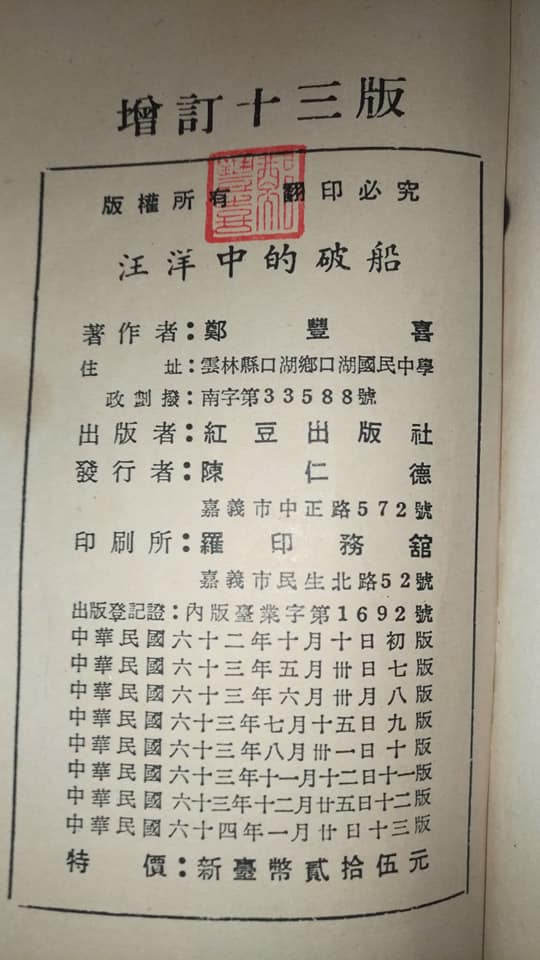 增訂十三版
版權所有 翻印必究
汪洋中的破船
著作者：鄭豐喜
住址：雲林縣口湖鄉口湖國民中學
政劃撥：南字第33588號
出版者：紅豆出版社
發行者：陳仁德
嘉義市中正路572號
印刷所：羅印務舘
嘉義市民生北路52號
出版登記證：內版臺業字第1692號
中華民國六十二年十月十日初版
中華民國六十三年五月卅日七版
中華民國六十三年六月卅月八版
中華民國六十三年七月十五日九版
中華民國六十三年八月卅一日十版
中華民國六十三年十一月十二日十一版
中華民國六十三年十二月廿五日十二版
中華民國六十四年一月廿日十三版
特價：新臺幣貳拾伍元